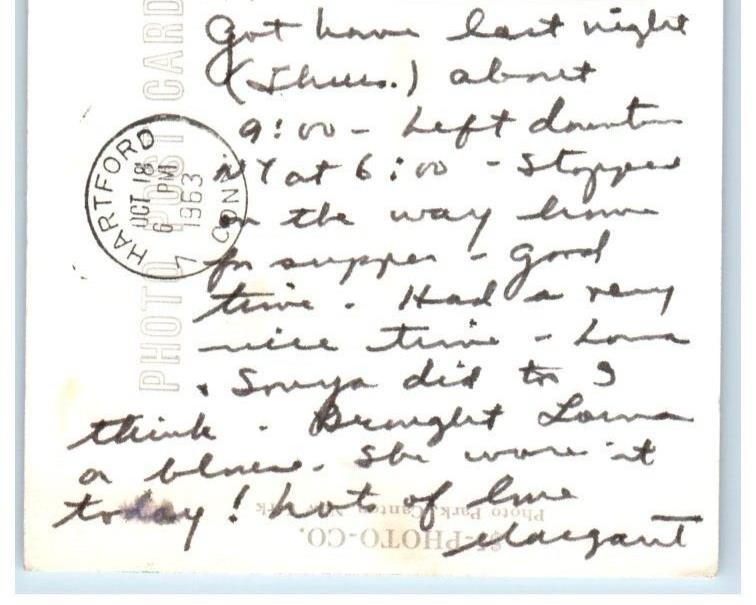 Got home last night
(Thurs.) about
9:00 - Left downtn
NY at 6:00 - Stopped
on the way home
for supper - Good
time. Had a very
nice time - Lorna
& Sonya did to I
think. Brought Lorna
a blouse. She wore it
today! Lots of love
Margaret
HARTFORD
OCT 18
6 PM
1963
CONN
PHOTO POST CARD
-PHOTO-CO.
Photo Park, Canton,